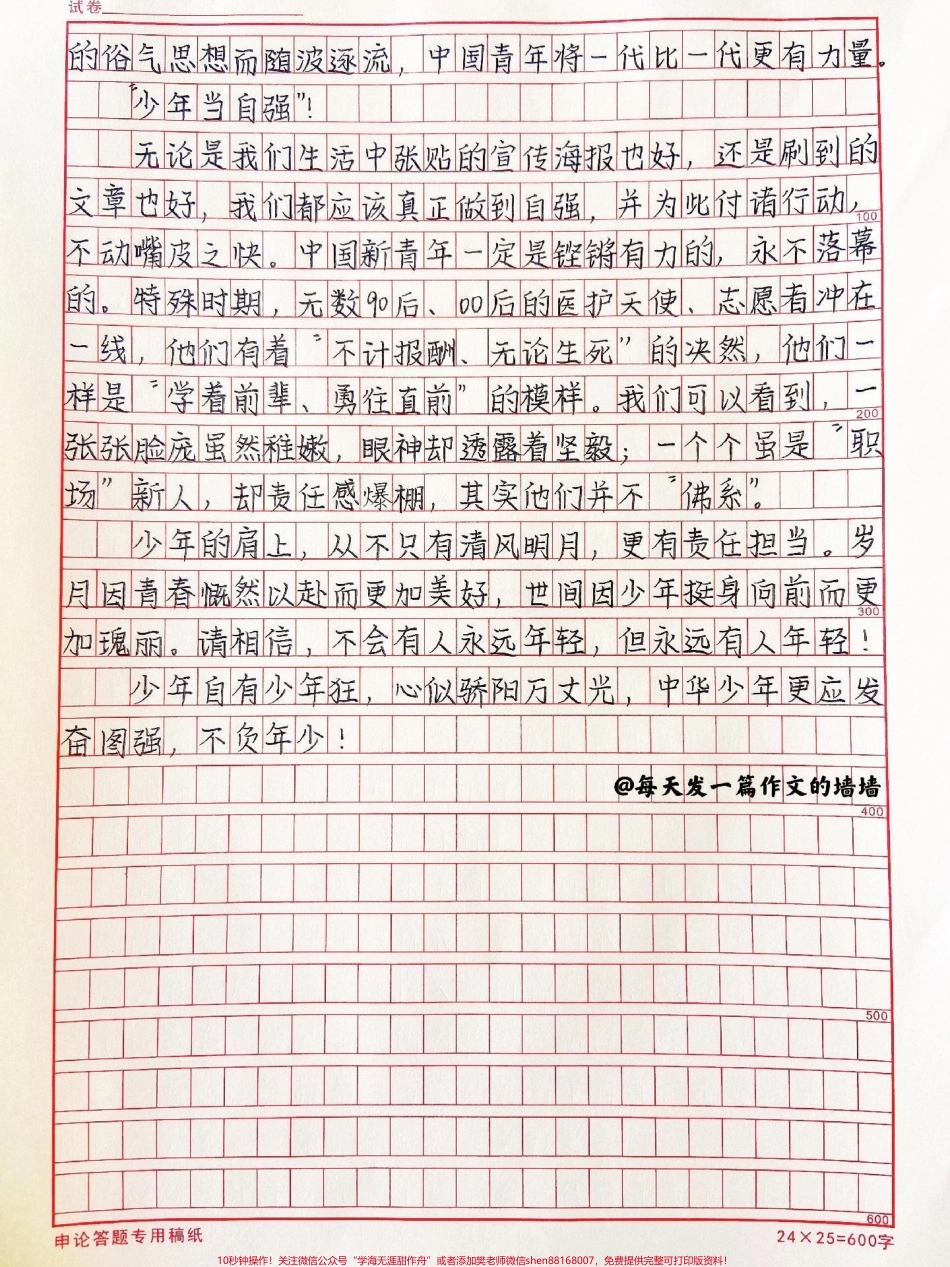 试卷
的俗气思想而随波逐流，中国青年将一代比一代更有力量。
“少年当自强”！
无论是我们生活中张贴的宣传海报也好，还是刷到的
文章也好，我们都应该真正做到自强，并为此付诸行动，
100
不动嘴皮之快。中国新青年一定是铿锵有力的，永不落幕
的。特殊时期，无数90后、00后的医护天使、志愿者冲在
一线，他们有着“不计报酬、无论生死”的决然，他们一
样是“学着前辈、勇往直前”的模样。我们可以看到，一
200
张张脸庞虽然稚嫩，眼神却透露着坚毅；一个个虽是“职
场”新人，却责任感爆棚，其实他们并不“佛系”。
少年的肩上，从不只有清风明月，更有责任担当。岁
月因青春慨然以赴而更加美好，世间因少年挺身向前而更
300
加瑰丽。请相信，不会有人永远年轻，但永远有人年轻！
少年自有少年狂，心似骄阳万丈光，中华少年更应发
奋图强，不负年少！
@每天发一篇作文的墙墙
400
500
600
申论答题专用稿纸
24×25=600字
10秒钟操作！关注微信公众号“学海无涯甜作舟”或者添加樊老师微信shen88168007，免费提供完整可打印版资料！